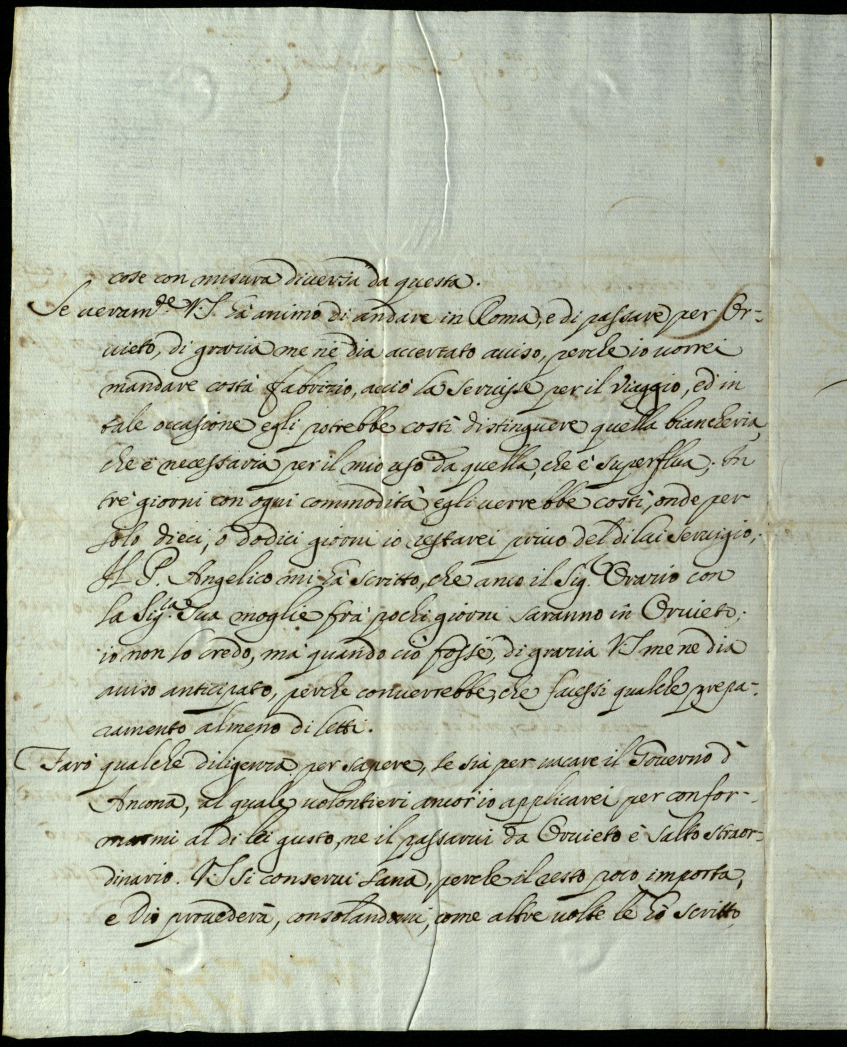 cose con misura diversa da questa.
Se veram.te V.S. hà animo di andare in Roma, e di passare per Or-
vieto, di grazia me ne dia accertato aviso, perche io vorrei
mandare costà Fabrizio, acciò la servisse per il viaggio, ed in
tale occasione egli potrebbe costì distinguere quella biancheria,
che è necessaria per il mio uso da quella, che è superflua; In
trè giorni con ogni commodità egli verrebbe costì, onde per
solo dieci, o dodici giorni io restarei privo del di lui servigio;
Il P. Angelico mi hà scritto, che anco il Sig.r Orazio con
la Sig.ra Sua moglie frà pochi giorni saranno in Orvieto;
io non lo credo, mà quando ciò fosse, di grazia V.S. me ne dia
aviso anticipato, perche converrebbe, che facessi qualche prepa-
ramento almeno di letti.
Farò qualche diligenza per sapere, se sia per vacare il Governo d'
Ancona, al quale volontieri ancor io applicarei per confor-
marmi al di lei gusto, ne il passarvi da Orvieto è salto straor-
dinario. V.S. si conservi sana, perche il resto poco importa,
e Dio provederà, consolandomi, come altre volte le hò scritto,